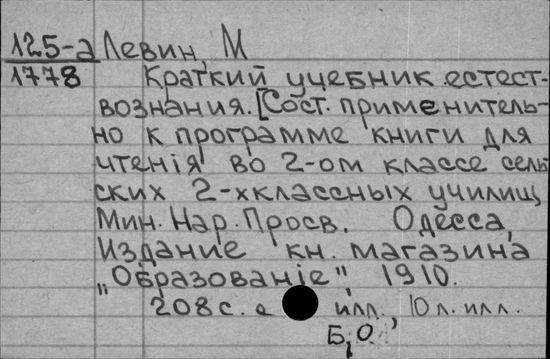 125-а Левин, М
1778 Краткий учебник естест-
вознания. [Сост. применитель-
но к программе книги для
чтенія во 2-ом классе сель
ских 2-хклассных училищ
Мин. Нар. Просв. Одесса,
Издание кн. магазина
„Образованіе", 1910.
208 с. с илл., 10 л. илл.
Б, О